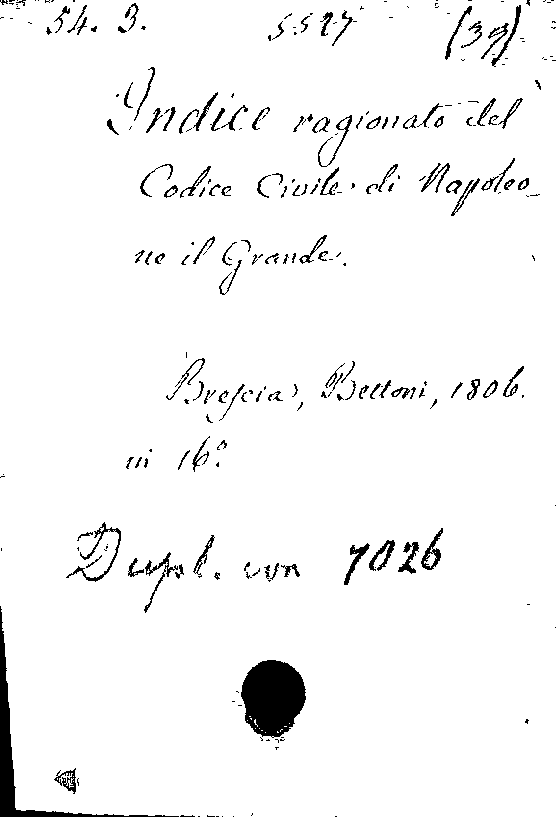 54. 3. 5527 (39)
Indice ragionato del
Codice Civile di Napoleo_
ne il Grande.
Brescia, Bettoni, 1806.
in 16º.
Dupl. von 7026